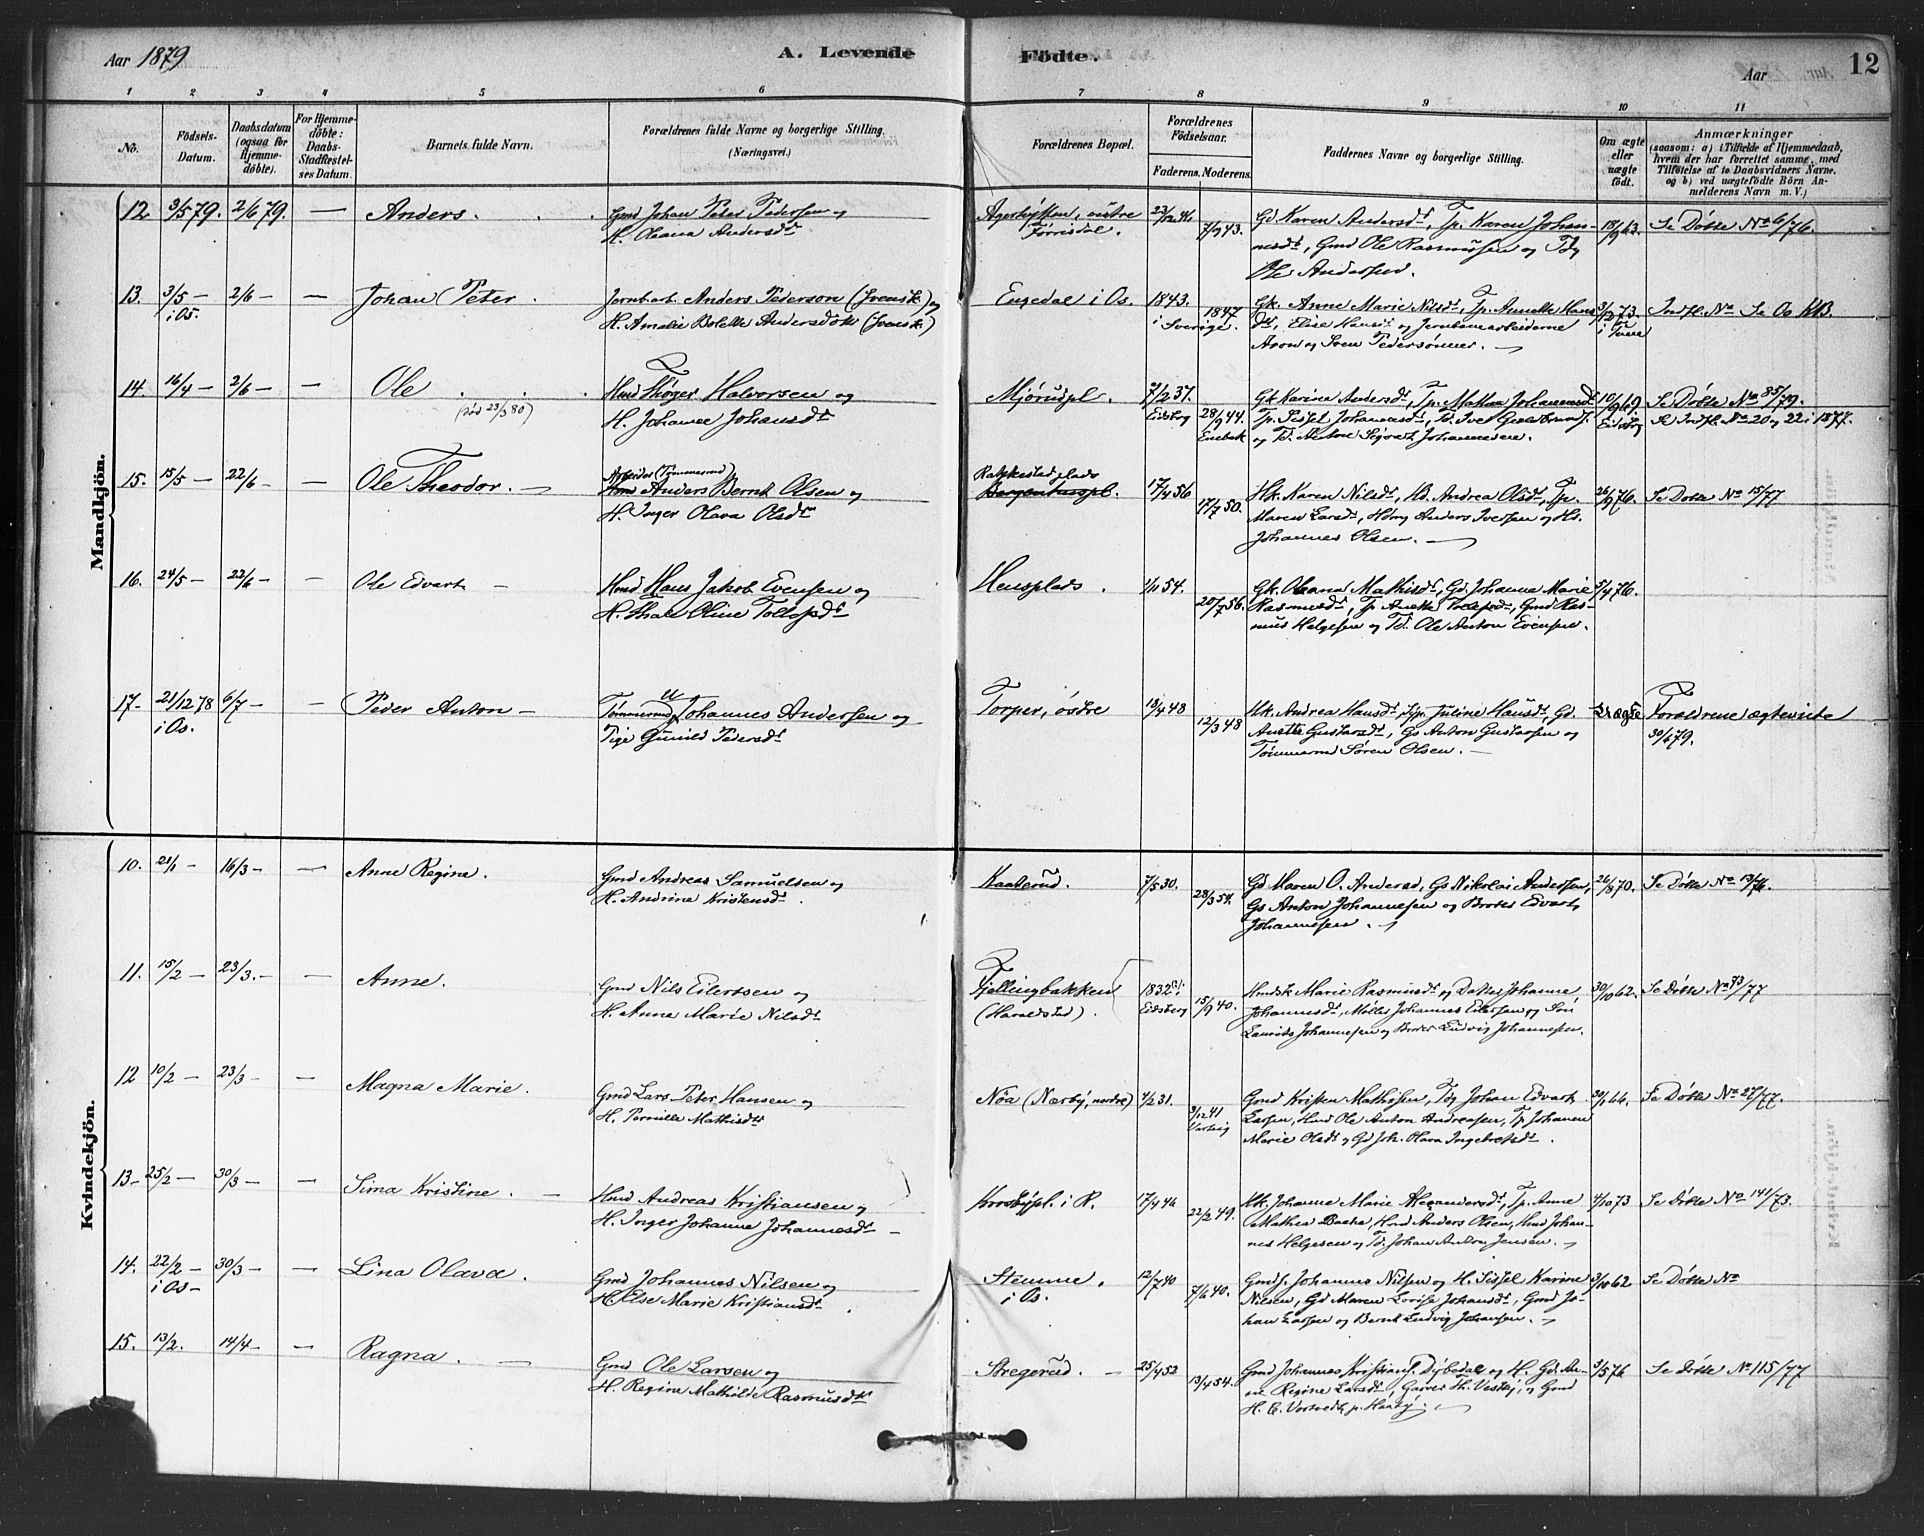 Aar 1879
A. Levende
Födte.
Aar
12
1 2 3 4 5 6 7 8 9 10 11
No.
Födsels-Datum.
Daabsdatum (ogsaa for Hjemme-döbte).
For Hjemme-döbte: Daabs-Stadfæstel-ses Datum.
Barnets fulde Navn.
Forældrenes fulde Navne og borgerlige Stilling. (Næringsvei.)
Forældrenes Bopæl.
Forældrenes Födselsaar.
Faderens. Moderens.
Faddernes Navne og borgerlige Stilling.
Om ægte eller uægte födt.
Anmærkninger
(saasom: a) i Tilfælde af Hjemmedaab,
hvem der har forrettet samme, med
Tilföielse af to Daabsvidners Navne.
og b) ved uægtefödte Börn An-
melderens Navn m. V.)
Mandkjön.
12 3/5 79. 2/6 79. — Anders. Gmd Johan Peter Pedersen og
H. Oleana Andersdt
Agerhytten, vestre
Förrisdal.
7/9 43.
Gd Karen Andersdt, Tp. Karen Johan-
nesdt, Gmd Ole Rasmussen og Tdg
Ole Andersen.
18/9 63. Se Döbte No 6/76.
13. 3/5 — i Os. 2/6 — — Johan Peter. Jernb.arb. Anders Pederson (Svensk) og
H. Amalie Bolette Andersdotr (Svensk)
Engedal i Os. 1843. 1847
i Sverige.
Gk. Anne Marie Nilsdt, Tp. Annette Hans
dt, Elise Hansdt og Jernbanearbeiderne
Aron og Sven Pedersönner. —
Indfl. No Se Os KB.
14. 16/4 — 2/6 — — Ole
(död 23/3 80)
Hmd Thöger Halvorsen og
H. Johanne Johansdt
Mjörudpl. 7/2 37.
Eidsbg
28/9 44.
Enebak
Gk Karine Andersdt, Tp. Mathea Johannesdt
Tp. Sissel Johannesdt,
og Td. Anton Sigvat Johannesen.
10/9 69.
Eidsbg
Se Döbte No 85/79.
Se Indfl. No 20 og 22 i 1877.
15. 15/5 — 22/6 — — Ole Theodor. — Arbeider (Tömmermd)
Hmd Anders Bernt Olsen og
H. Inger Olava Olsdt
Rakkestad plads
17/4 56 17/7 50.
Hk. Karen Nilsdt, Hd. Andrea Olsdt, Tp.
Maren Larsdt, Anders Iversen og Hs.
Johannes Olsen. —
26/9 76. Se Döbte No 15/77
16. 24/5 — 22/6 — — Ole Edvart — Hmd Hans Jakob Evensen og
H. Thale Oline Tollefsdt
Hensplads. 1/1 54. 20/7 56.
Gk. Oleana Mathisdt, Gd. Johanne Marie
Rasmusdt, Tp Anette Tollefsdt, Gmd Ras-
mus Helgesen og Td. Ole Anton Evensen.
5/4 76.
17. 21/12 78 i Os. 6/7 — — Peder Anton — U
Tömmermd Johannes Andersen og
Pige Gunild Pedersdt
Torper, östre 13/4 48 12/3 48
Hk. Andrea Hansdt, Tp. Juline Hansdt, Gd.
Anette Gustavsdt, Gs Anton Gustavsen og
Tömmermd Sören Olsen. —
Uægte Forældrene ægteviede
30/6 79.
Kvindekjön.
10. 21/1 — 16/3 — — Anne Regine. Gmd Andreas Samuelsen og
H. Andrine Kristensdt.
Kaaterud. 7/5 30. 28/3 54.
Gd Maren O. Andersd, Gs Nikolai Andersen,
Gs Anton Johannesen og Broder Edvart
Johannesen. —
26/8 70. Se Döbte No 13/76.
11. 15/2 — 23/3. — — Anne. Gmd Nils Eilertsen og
H. Anne Marie Nilsdt
Fjellingbakken
(Haraldstad).
1832
Eidsberg
15/9 40.
Hmdsk Marie Rasmusdt og Datter Johanne
Johannesdt, Möller Johannes Eilersen og Sön
Laurits Johannesen og Broder Ludvig Johannesen.
30/10 62. Se Döbte No 73/77
12 10/2 — 23/3 — — Magna Marie. Gmd Lars Peter Hansen og
H. Pernille Mathisdt
Nöa (Nærby, nordre) 4/2 31. 3/12 41
Gmd Kristen Mathisen, Tdg Johan Edvart
Larsen, Hmd Ole Anton Andreasen, Tp. Johanne
Marie Olsdt og Gd Joh. Olava Ingebretsdt.
Se Döbte No 27/77.
13 — 25/2 — 30/3 — — Sina Kristine. — Hmd Andreas Kristiansen og
H. Inger Johanne Johannesdt —
Krosbypl. i R. 17/4 46 22/2 49.
Hk. Johanne Marie Alexandersdt, Tp. Anne
Mathea Baltze, Hmd Anders Olsen, Hmd Johan-
nes Helgesen og Td. Johan Anton Jensen. —
4/10 73 Se Döbte No 141/73.
14. 22/2 — i Os — 30/3 — — Lina Olava. Gmd Johannes Nilsen og
H. Else Marie Kristiansdt.
Stemme.
i Os.
12/7 40 7/6 40.
Gmdsf. Johannes Nilsen og H. Sissel Karine
Nilsen, Gd Maren Lovise Johansdt, Gmd Jo-
han Larsen og Bernt Ludvig Johansen. —
3/10 62 Se Döbte No
15. 13/2. 14/4 — — Ragna. — Gmd Ole Larsen og
H. Regine Mathilde Rasmusdt
Stregerud. — 25/4 52 13/4 54.
Gmd Johannes Kristians. Dybedal og H. Gd. An-
ne Regine Larsdt, Garver Th. Vestby, og Gmd
H. C. Vestvedt, p. Haaby. —
9/5 76 Se Döbte No 115/77